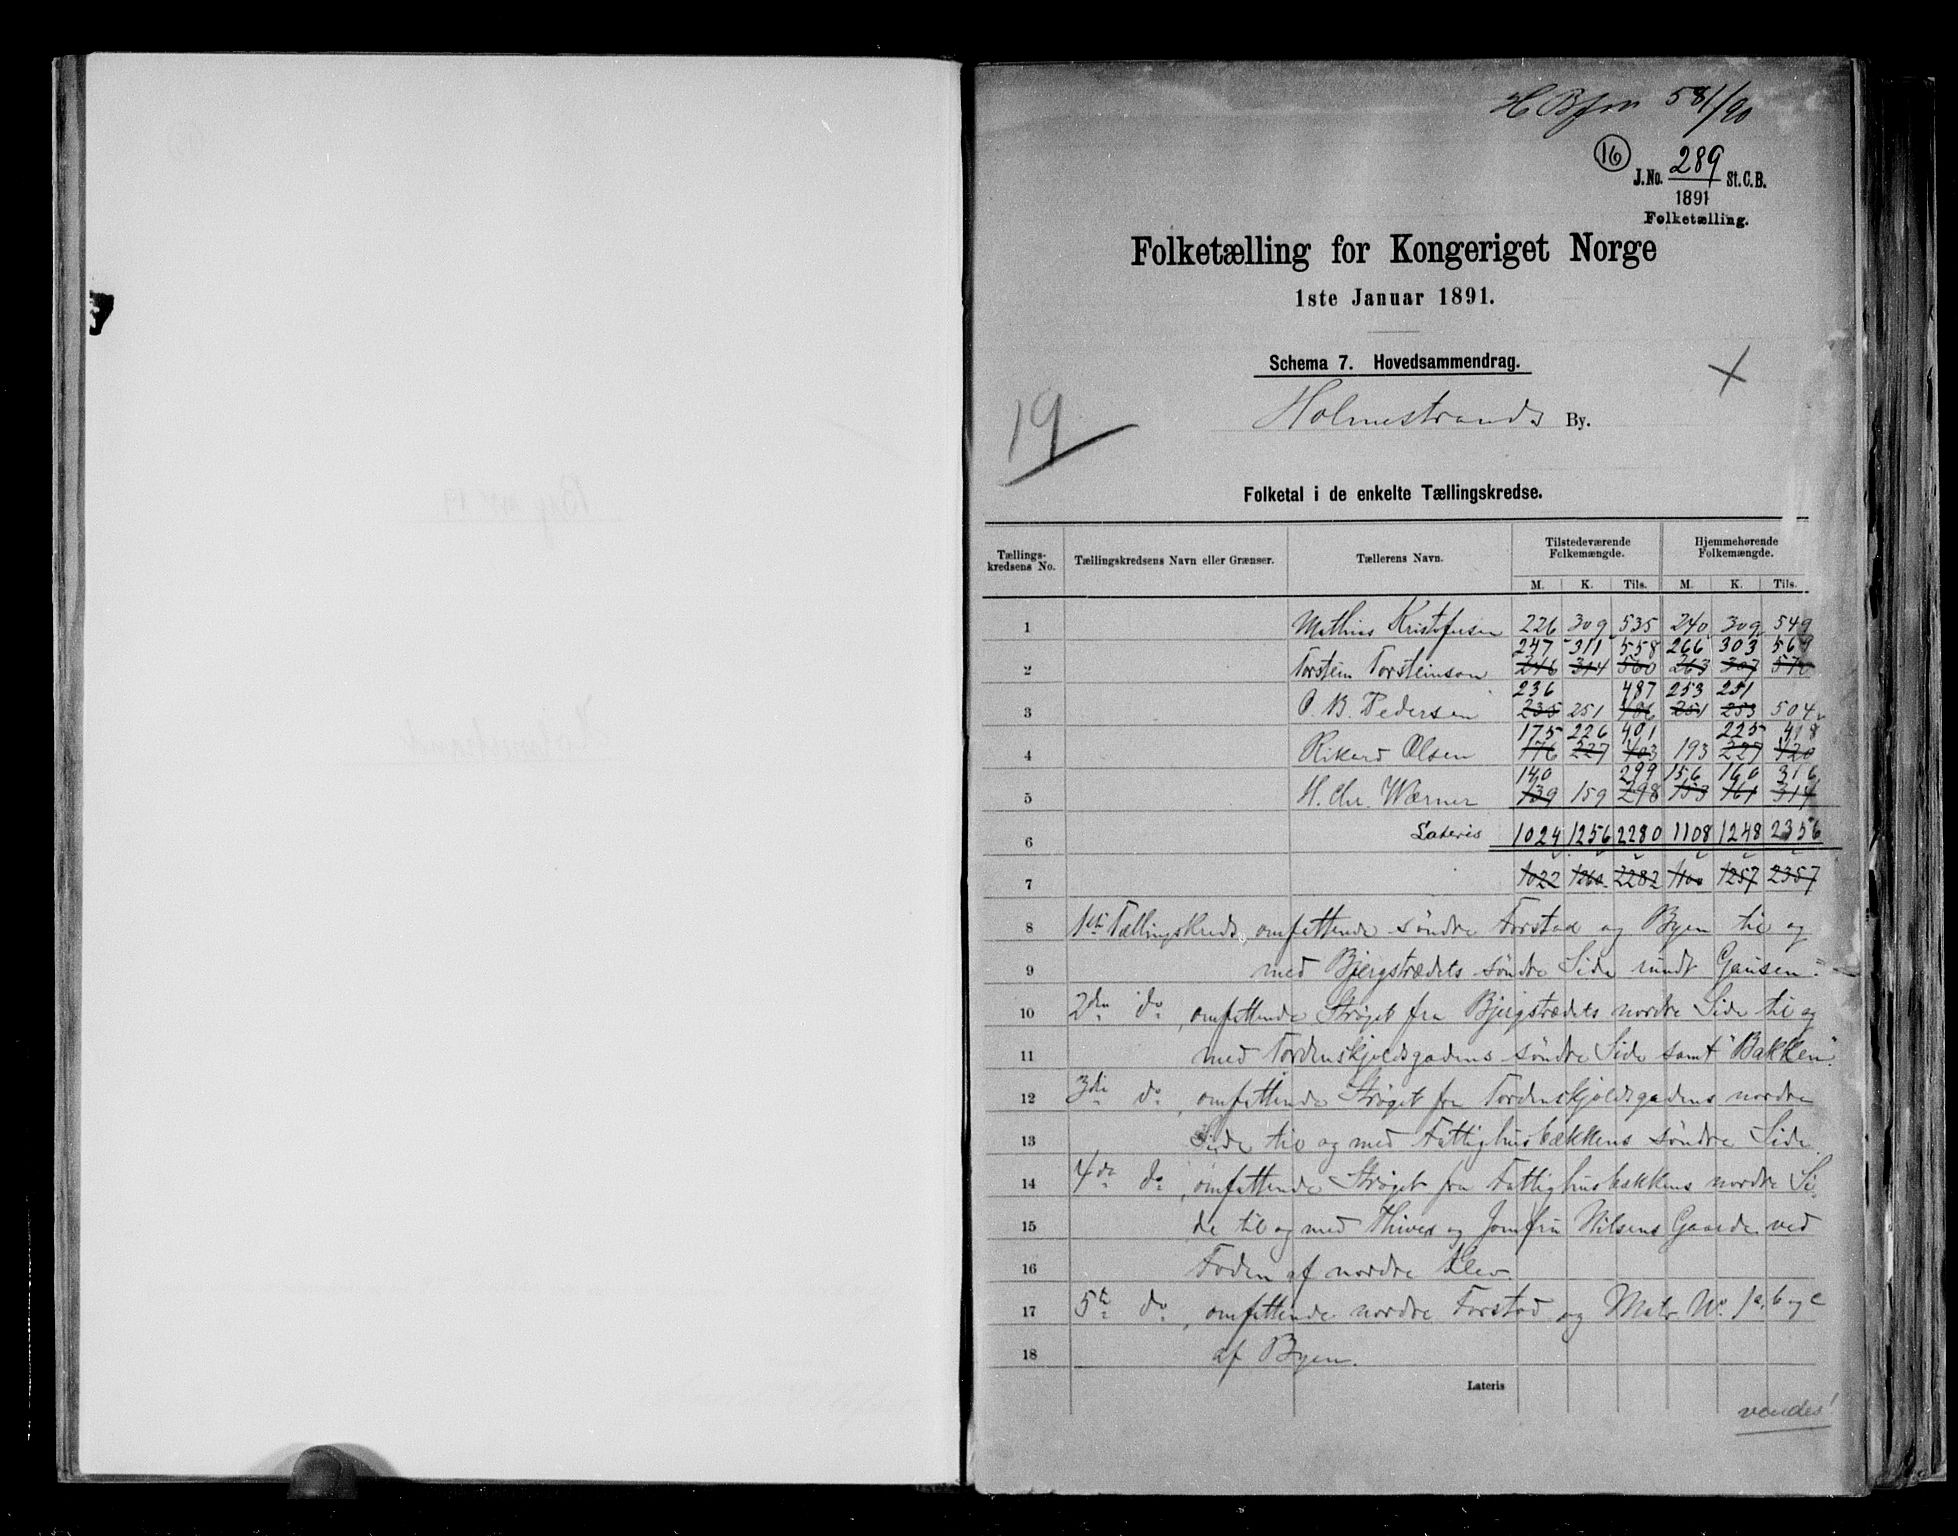 581/90
16
J.No. 289 St.C.B.
1891
Folketælling.
Folketælling for Kongeriget Norge
1ste Januar 1891.
Schema 7. Hovedsammendrag.
19
Holmestrands By.
Folketal i de enkelte Tællingskredse.
Tællings-kredsens No. Tællingskredsens Navn eller Grænser. Tællerens Navn. Tilstedeværende Folkemængde. Hjemmehørende Folkemængde.
M. K. Tils. M. K. Tils.
1 Mathias Kristofersen 226 309 535 240 309 549
247 311 558 266 303 569
2 Torstein Torsteinson 246 314 560 263 307 570
236 487 253 251
3 O. B. Pedersen 235 251 486 251 253 504
175 226 401 225 418
4 Rikard Olsen 176 227 403 193 227 420
140 299 156 160 316
5 H. Chr. Wærner 139 159 298 153 161 314
6 Lateris 1024 1256 2280 1108 1248 2356
7 1022 1260 2282 1100 1257 2357
8 1ste Tællingskreds, omfattende søndre Forstad og Byen til og
9 med Bjergstrædets søndre Side rundt Gausen.
10 2den do, omfattende Strøget fra Bjergstrædets nordre Side til og
11 med Tordenskjoldsgadens søndre Side samt "Bakken".
12 3die do, omfattende Strøget fra Tordenskjoldsgadens nordre
13 Side til og med Fattighusbækkens søndre Side.
14 4de do, omfattende Strøget fra Fattighusbækkens nordre Si-
15 de til og med Thives og Jomfru Nilsens Gaarde ved
16 Foden af nordre Klev.
17 5te do, omfattende nordre Forstad og Matr No. 1a, b og c
18 af Byen.
Lateris
vendes!